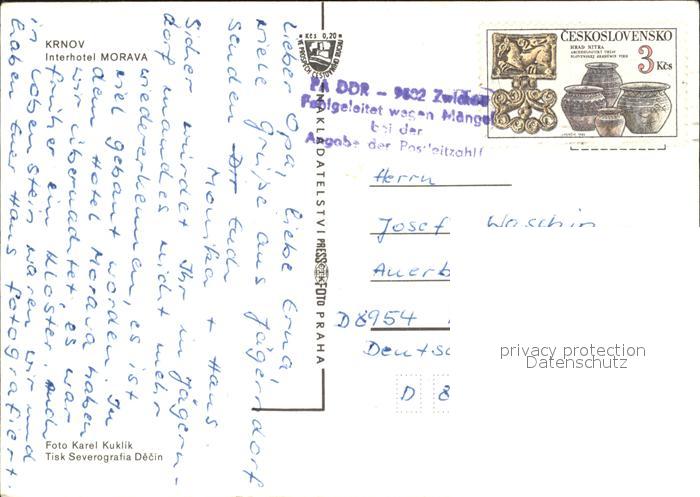 KRNOV
Interhotel MORAVA
Lieber Opa, liebe Erna,
viele Grüße aus Jägerndorf
senden Euch
Monika + Hans.
Sicher würdet Ihr in Jägern-
dorf manches nicht mehr
wiedererkennen, es ist
viel gebaut worden. In
dem Hotel Morava haben
wir übernachtet, es war
früher ein Kloster. Auch
in Lobenstein waren wir und
haben Euer Haus fotografiert.
Foto Karel Kuklík
Tisk Severografia Děčín
Kčs 0,20
NAKLADATELSTVÍ PRESSFOTO PRAHA
ČESKOSLOVENSKO
HRAD NITRA
ARCHEOLOGICKÝ ÚSTAV
SLOVENSKEJ AKADÉMIE VIED
3 Kčs
PA DDR - 9602 Zwickau
Fehlgeleitet wegen Mängel
bei der
Angabe der Postleitzahl!
Herrn
Josef Waschin
Auerb
D8954
Deutsc
D 8
privacy protection
Datenschutz